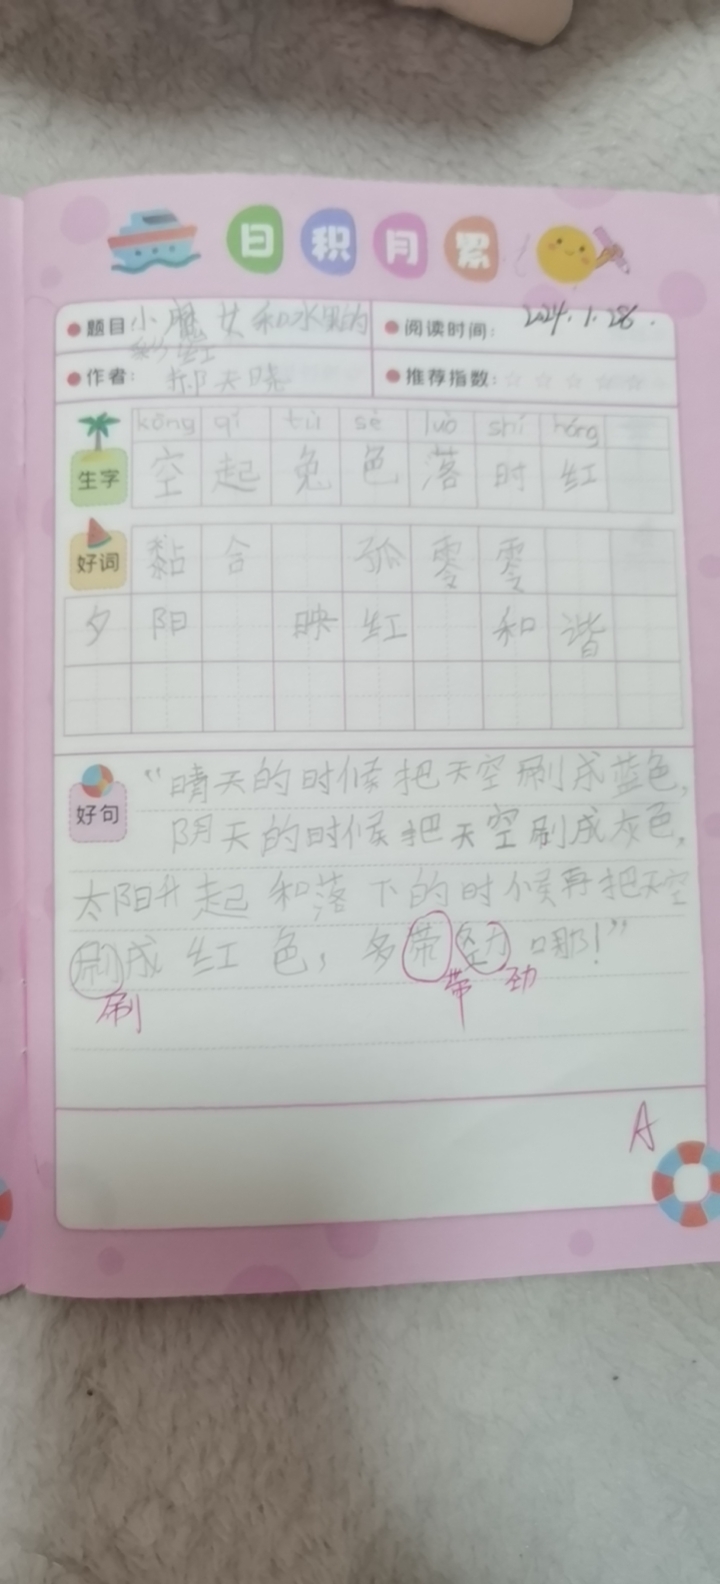 日积月累
题目 小魔女和水里的 阅读时间: 2024.1.28.
彩虹
作者: 郝天晓 推荐指数: ☆ ☆ ☆ ☆ ☆
kōng qǐ tù sè luò shí hóng
生字 空 起 兔 色 落 时 红
好词 黏 合 孤 零 零
夕 阳 映 红 和 谐
好句 “晴天的时候把天空刷成蓝色,
阴天的时候把天空刷成灰色,
太阳升起和落下的时候再把天空
刷成红色,多带劲哪!”
刷 带 劲
A